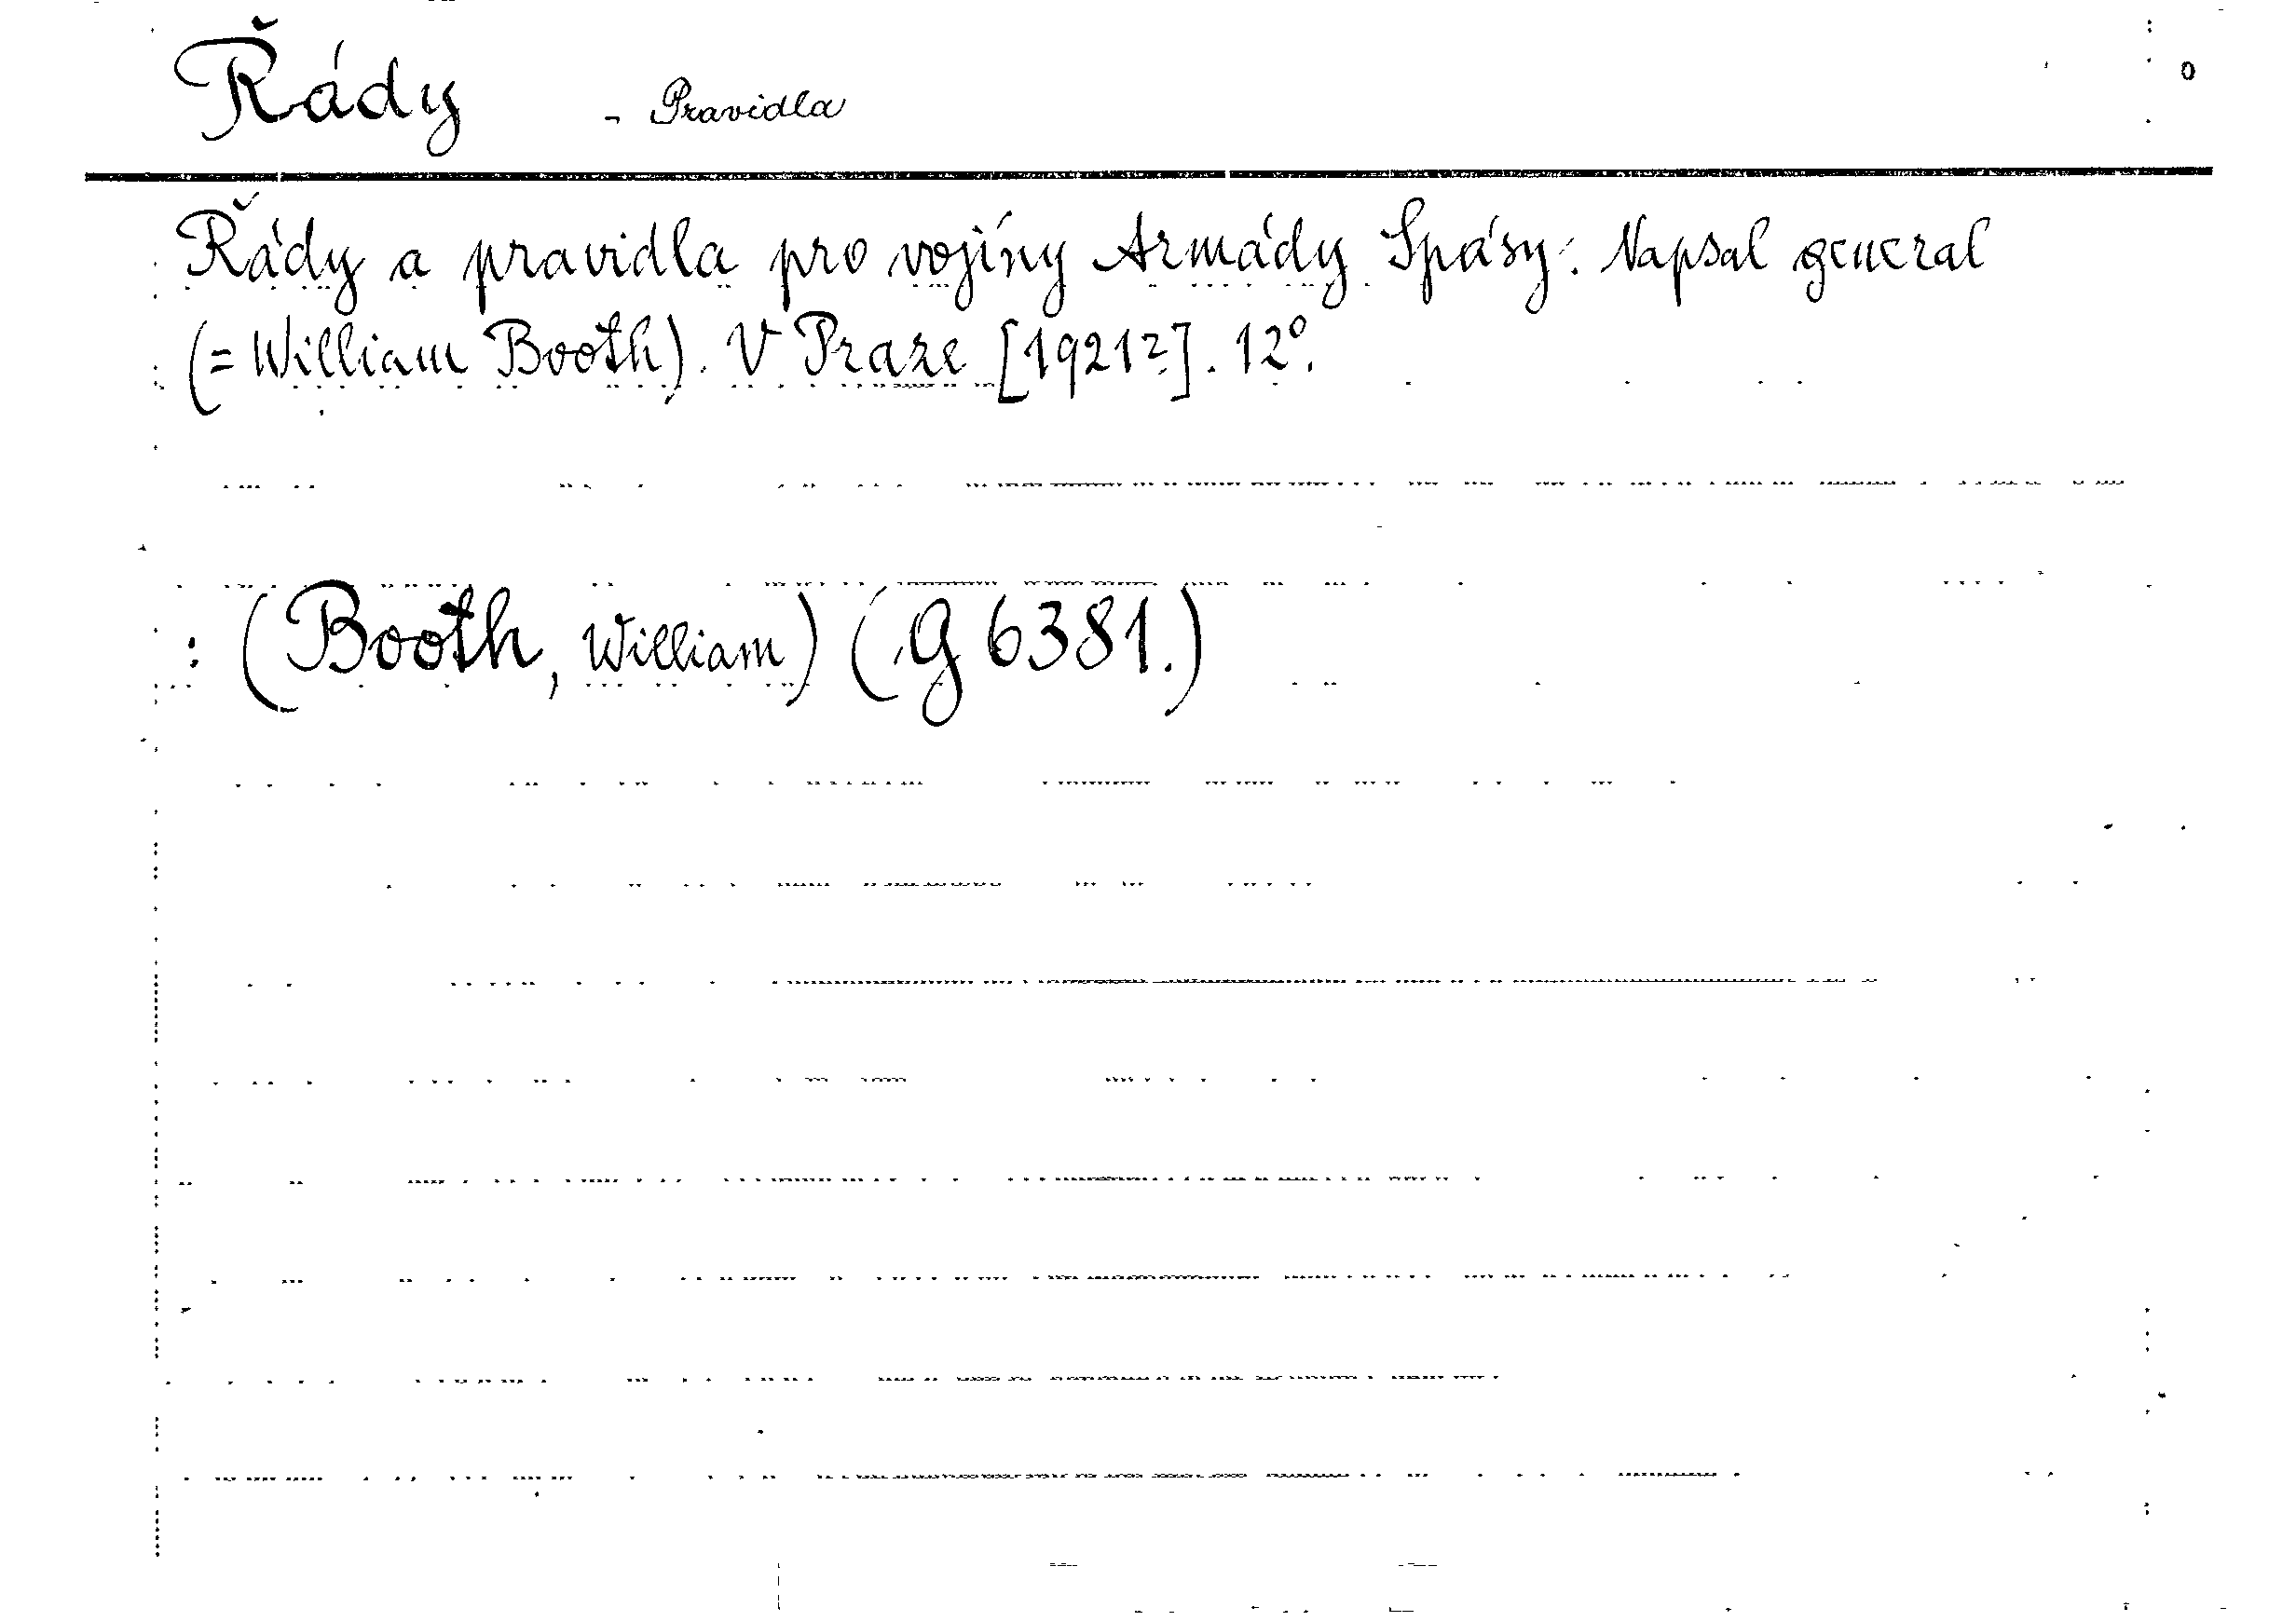 Řády - Pravidla
Řády a pravidla pro vojíny Armády Spásy. Napsal general
(= William Booth). V Praze [1921?]. 12°.
: (Booth, William) (G 6381.)